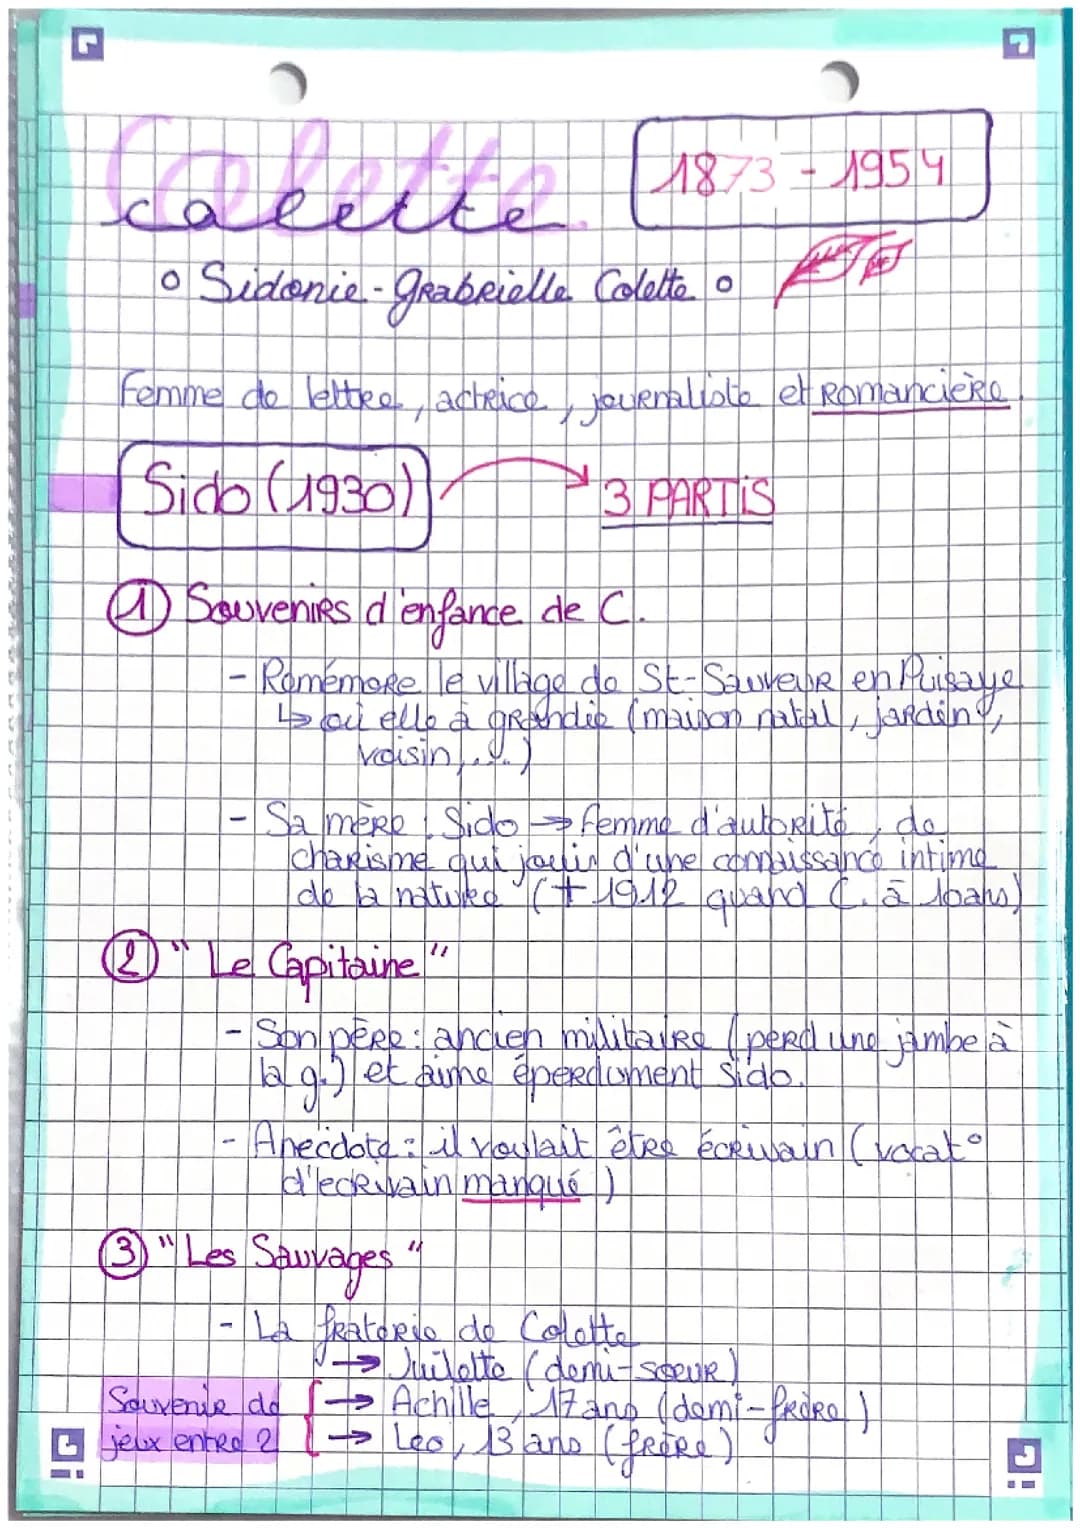 Colette
1873 - 1954
Sidonie-Grabrielle Colette
Femme de lettre, actrice, journaliste et Romancière.
Sido (1930) → 3 PARTIS
① Souvenirs d'enfance de C.
- Remémore le village de St-Sauveur en Puisaye
↳ où elle à grandie (maison natal, jardin,
voisin,...)
- Sa mère : Sido → femme d'autorité, de
charisme qui jouir d'une connaissance intime
de la nature († 1912 quand C. à ans)
② "Le Capitaine"
- Son père : ancien militaire (perd une jambe à
la g.) et aime éperdument Sido.
- Anecdote : il voulait être écrivain (vocat°
d'ecrivain manqué)
③ "Les Sauvages"
- La fraterie de Colette
→ Juilette (demi-soeur)
Souvenir de → Achille, 17 ans (demi-frère)
jeux entre 2 → Leo, 13 ans (frère)